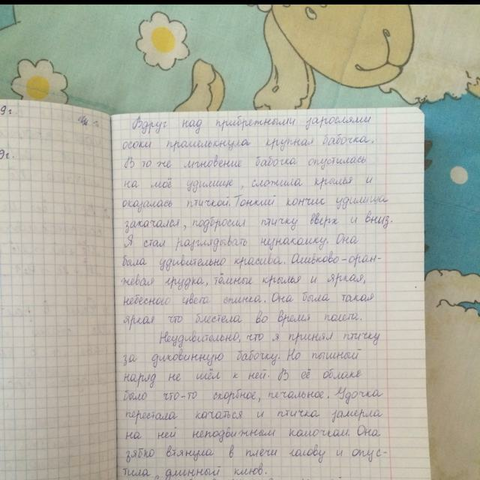 9г
9г.
Вдруг над прибрежными зарослями
осоки промелькнула крупная бабочка.
В то же мгновение бабочка опустилась
на моё удилище, сложила крылья и
оказалась птичкой. Тонкий кончик удилища
закачался, подбросил птичку вверх и вниз.
Я стал разглядывать незнакомку. Она
была удивительно красива. Оливково-оран-
жевая грудка, тёмные крылья и яркая,
небесного цвета спинка. Она была такая
яркая что блестела во время полёта.
Неудивительно, что я принял птичку
за диковинную бабочку. Но пышный
наряд не шёл к ней. В её облаке
было что-то скорбное, печальное. Удочка
перестала качаться и птичка замерла
на ней неподвижным комочкам. Она
зябко втянула в плечи голову и опус-
тила длинный клюв.